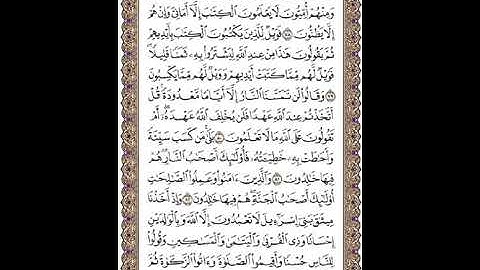 وَمِنْهُمْ أُمِّيُّونَ لَا يَعْلَمُونَ ٱلْكِتَٰبَ إِلَّآ أَمَانِىَّ وَإِنْ هُمْ
إِلَّا يَظُنُّونَ ٧٨ فَوَيْلٌ لِّلَّذِينَ يَكْتُبُونَ ٱلْكِتَٰبَ بِأَيْدِيهِمْ
ثُمَّ يَقُولُونَ هَٰذَا مِنْ عِندِ ٱللَّهِ لِيَشْتَرُوا۟ بِهِۦ ثَمَنًا قَلِيلًا
فَوَيْلٌ لَّهُم مِّمَّا كَتَبَتْ أَيْدِيهِمْ وَوَيْلٌ لَّهُم مِّمَّا يَكْسِبُونَ
٧٩ وَقَالُوا۟ لَن تَمَسَّنَا ٱلنَّارُ إِلَّآ أَيَّامًا مَّعْدُودَةً قُلْ
أَتَّخَذْتُمْ عِندَ ٱللَّهِ عَهْدًا فَلَن يُخْلِفَ ٱللَّهُ عَهْدَهُۥٓ أَمْ
تَقُولُونَ عَلَى ٱللَّهِ مَا لَا تَعْلَمُونَ ٨٠ بَلَىٰ مَن كَسَبَ سَيِّئَةً
وَأَحَٰطَتْ بِهِۦ خَطِيٓـَٔتُهُۥ فَأُو۟لَٰٓئِكَ أَصْحَٰبُ ٱلنَّارِ هُمْ
فِيهَا خَٰلِدُونَ ٨١ وَٱلَّذِينَ ءَامَنُوا۟ وَعَمِلُوا۟ ٱلصَّٰلِحَٰتِ
أُو۟لَٰٓئِكَ أَصْحَٰبُ ٱلْجَنَّةِ هُمْ فِيهَا خَٰلِدُونَ ٨٢ وَإِذْ أَخَذْنَا
مِيثَٰقَ بَنِىٓ إِسْرَٰٓءِيلَ لَا تَعْبُدُونَ إِلَّا ٱللَّهَ وَبِٱلْوَٰلِدَيْنِ
إِحْسَانًا وَذِى ٱلْقُرْبَىٰ وَٱلْيَتَٰمَىٰ وَٱلْمَسَٰكِينِ وَقُولُوا۟
لِلنَّاسِ حُسْنًا وَأَقِيمُوا۟ ٱلصَّلَوٰةَ وَءَاتُوا۟ ٱلزَّكَوٰةَ ثُمَّ